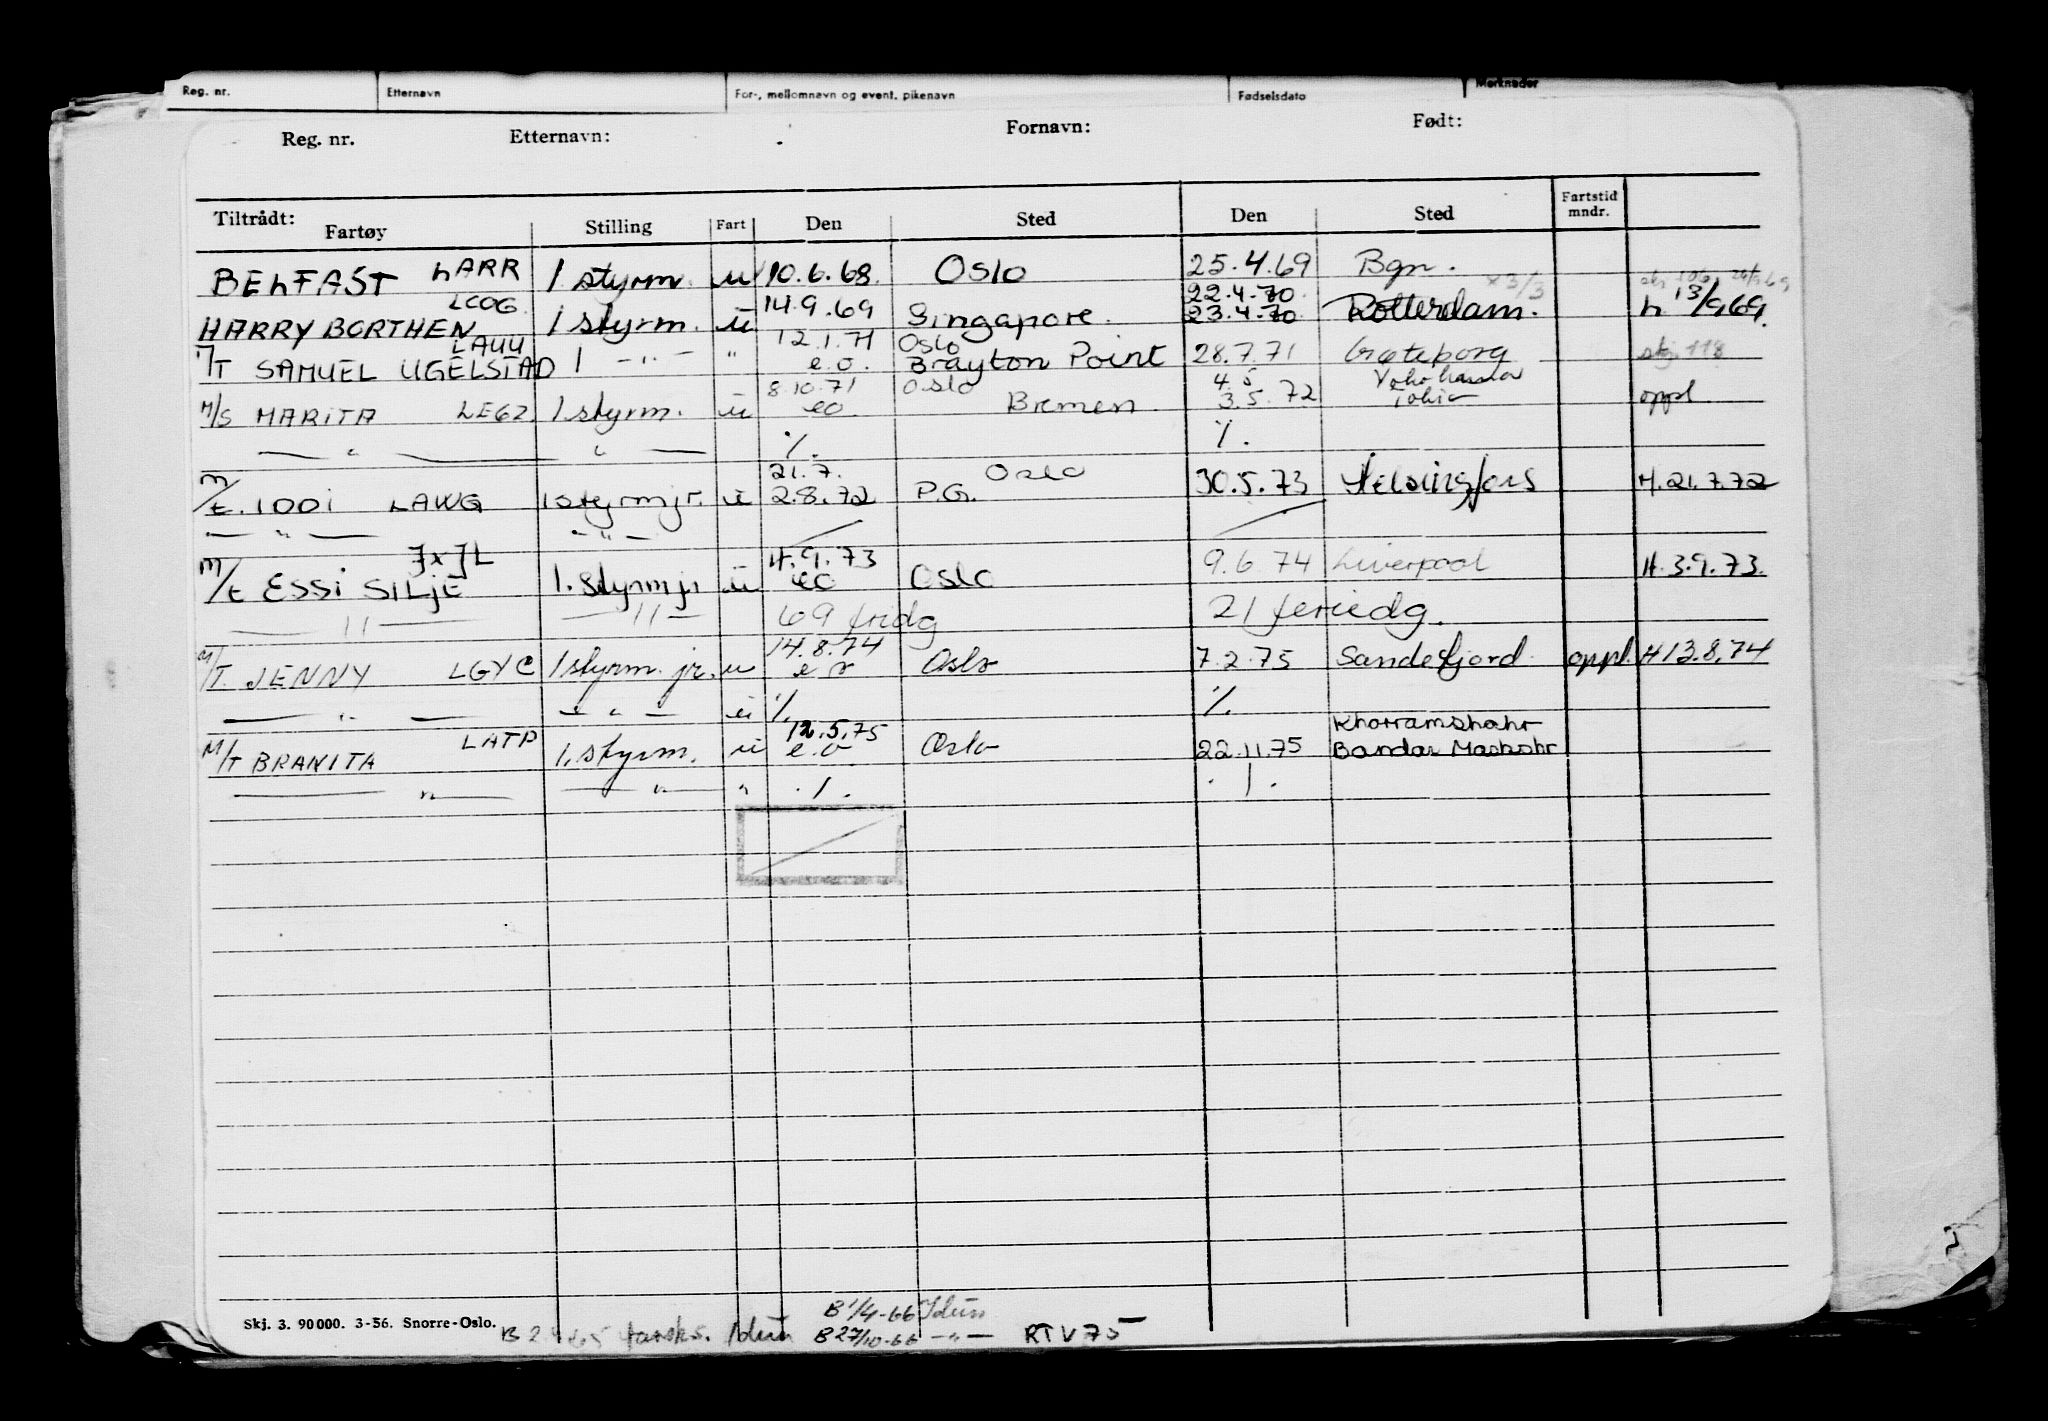 Reg. nr. Etternavn For-, mellomnavn og event. pikenavn Fødselsdato Merknader
Reg. nr. Etternavn: Fornavn: Født:
Tiltrådt: Fartøy Stilling Fart Den Sted Den Sted Fartstid mndr.
BELFAST LARR 1 styrm. u 10.6.68. Oslo 25.4.69 Bgn.
LCOG 14.9.69 22.4.70. x 3/3
HARRY BORTHEN 1 styrm. u Singapore. 23.4.70 Rotterdam. h 13/9 69.
LAUU 12.1.71 Oslo
T/T SAMUEL UGELSTAD 1 -"- " e.o. Brayton Point 28.7.71 Gøteborg skj 118
8.10.71 Oslo 4.5 Yokohama
M/S MARITA LEGZ 1 styrm. u eo Bremen 3.5.72 oppl.
— " — " — ./. ./.
21.7. Oslo
M/T. IDDI LAWG 1 styrm jr. u 2.8.72 P.G. 30.5.73 Helsingfors H. 21.7.72
— " — - " - / /
JXJL 4.9.73
M/T ESSI SILJE 1. styrm jr u eo Oslo 9.6.74 Liverpool H. 3.9.73.
— " — — " — 69 fridg 21 feriedg.
14.8.74
M/T. JENNY LGYC 1 styrm. jr. u e o Oslo 7.2.75 Sandefjord oppl. H 13.8.74
— " — — " — u ./. ./.
LATP 12.5.75 Khorramshahr
M/T BRANITA 1. styrm. u e.o. Oslo 22.11.75 Bandar Mashahr
— " — — " — " ./. ./.
Skj. 3. 90 000. 3-56. Snorre-Oslo.
B 1/4-66 Idun
Idun B 27/10-66 -"- RTV 75